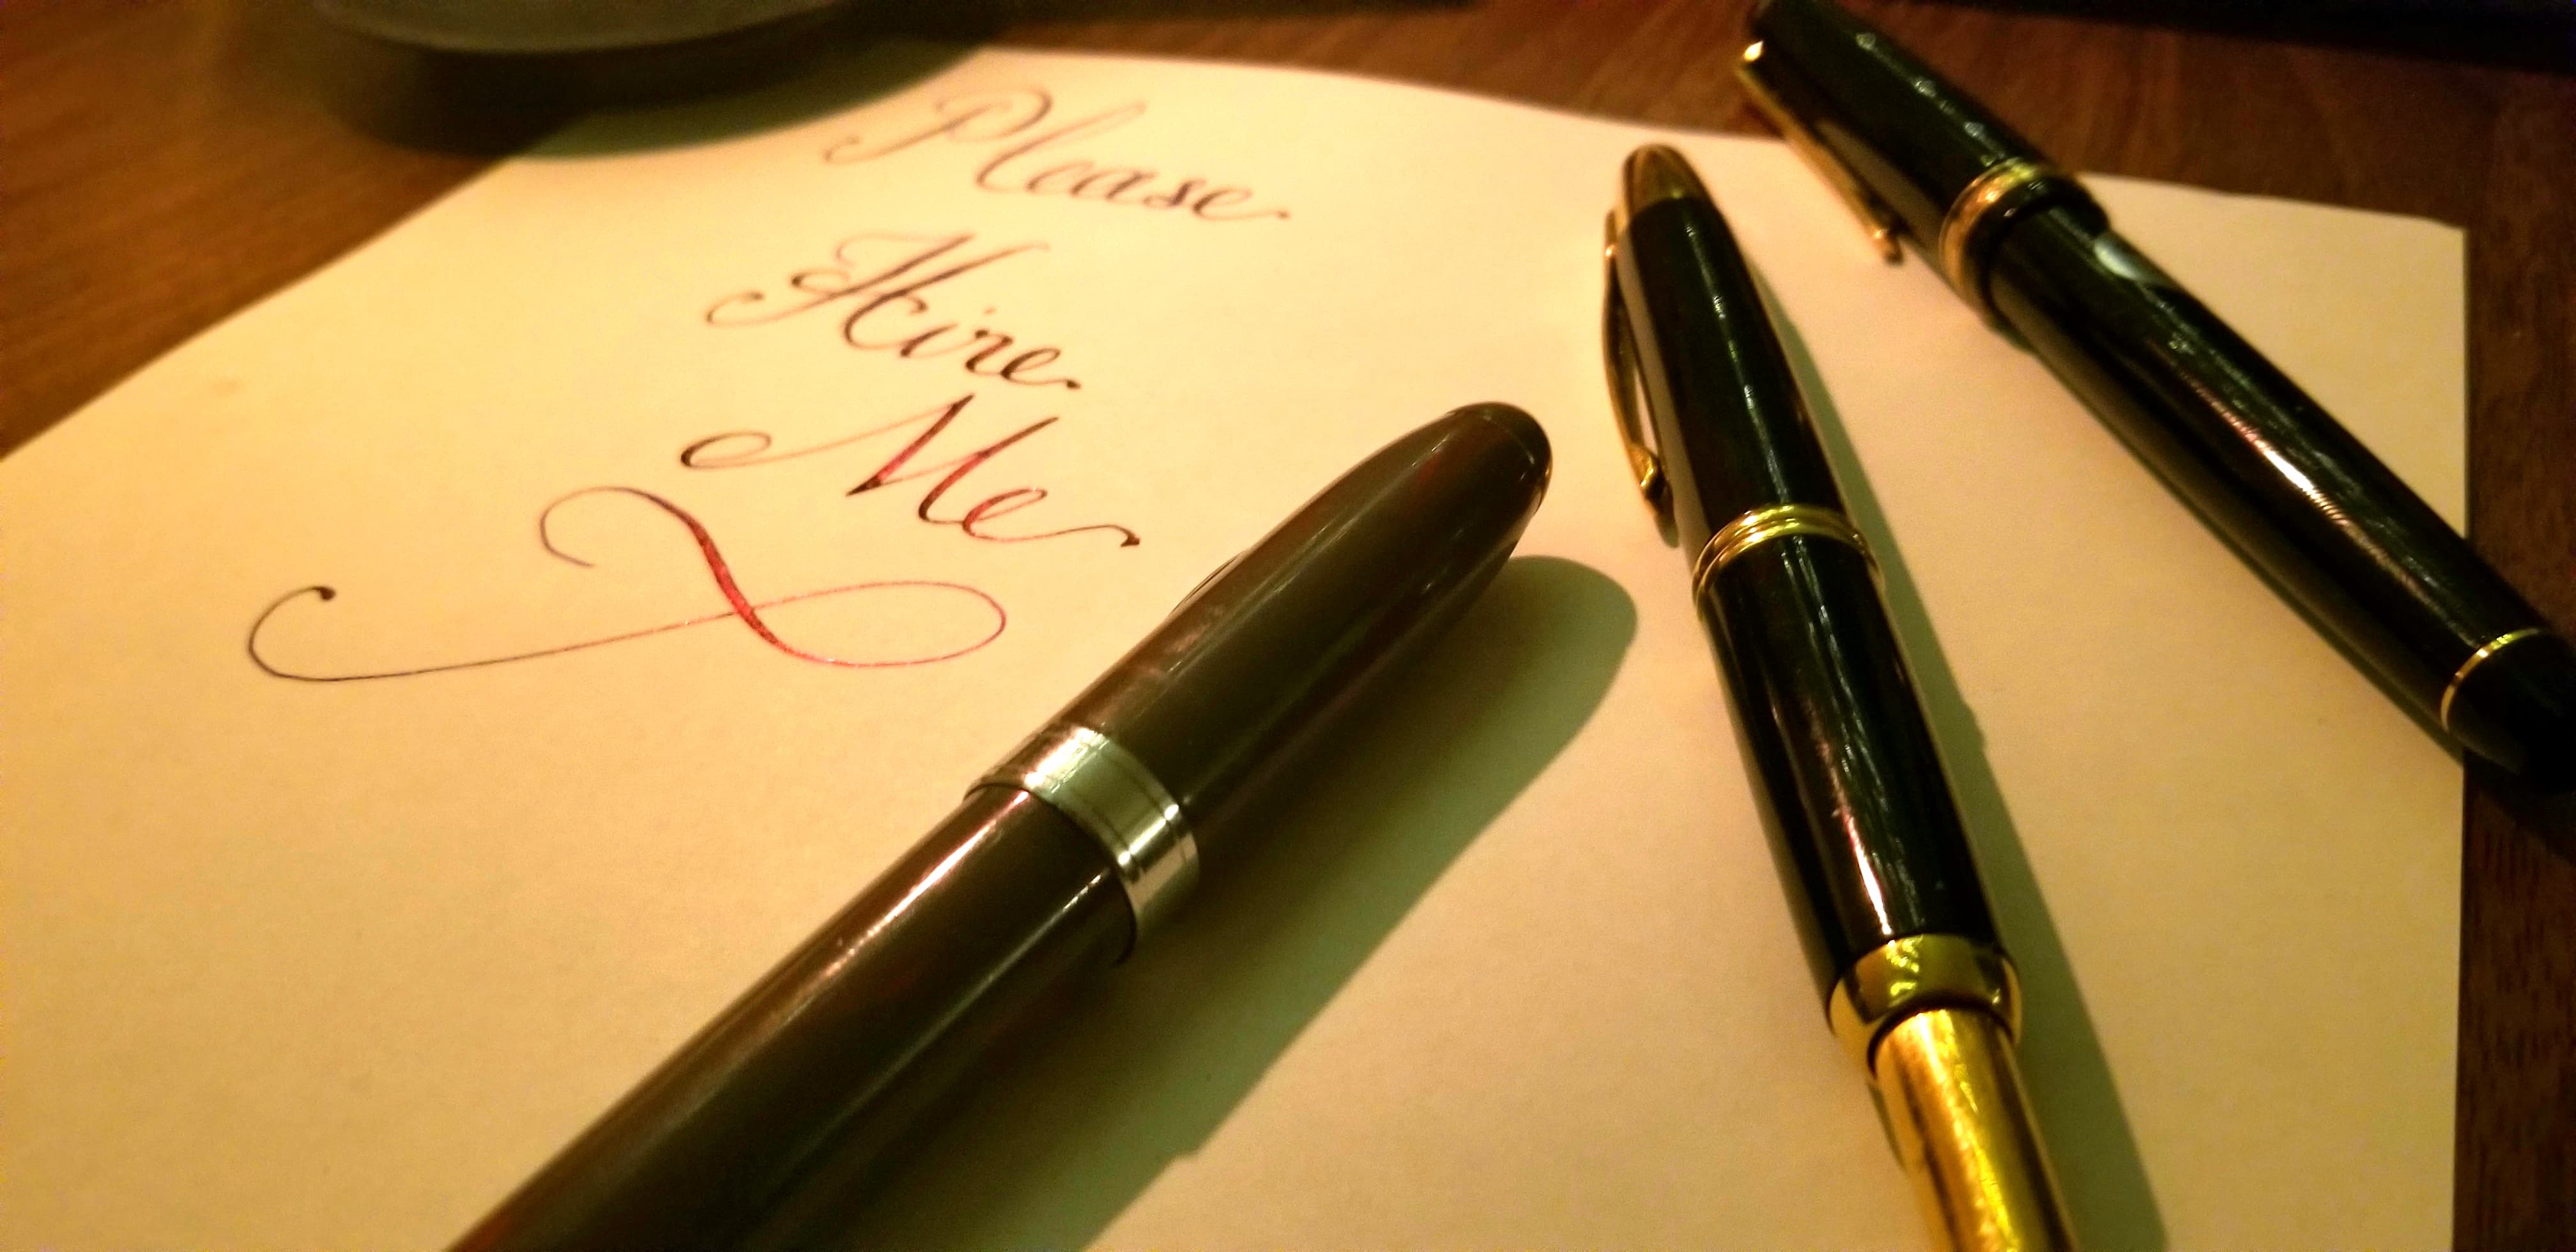 Please
Hire
Me